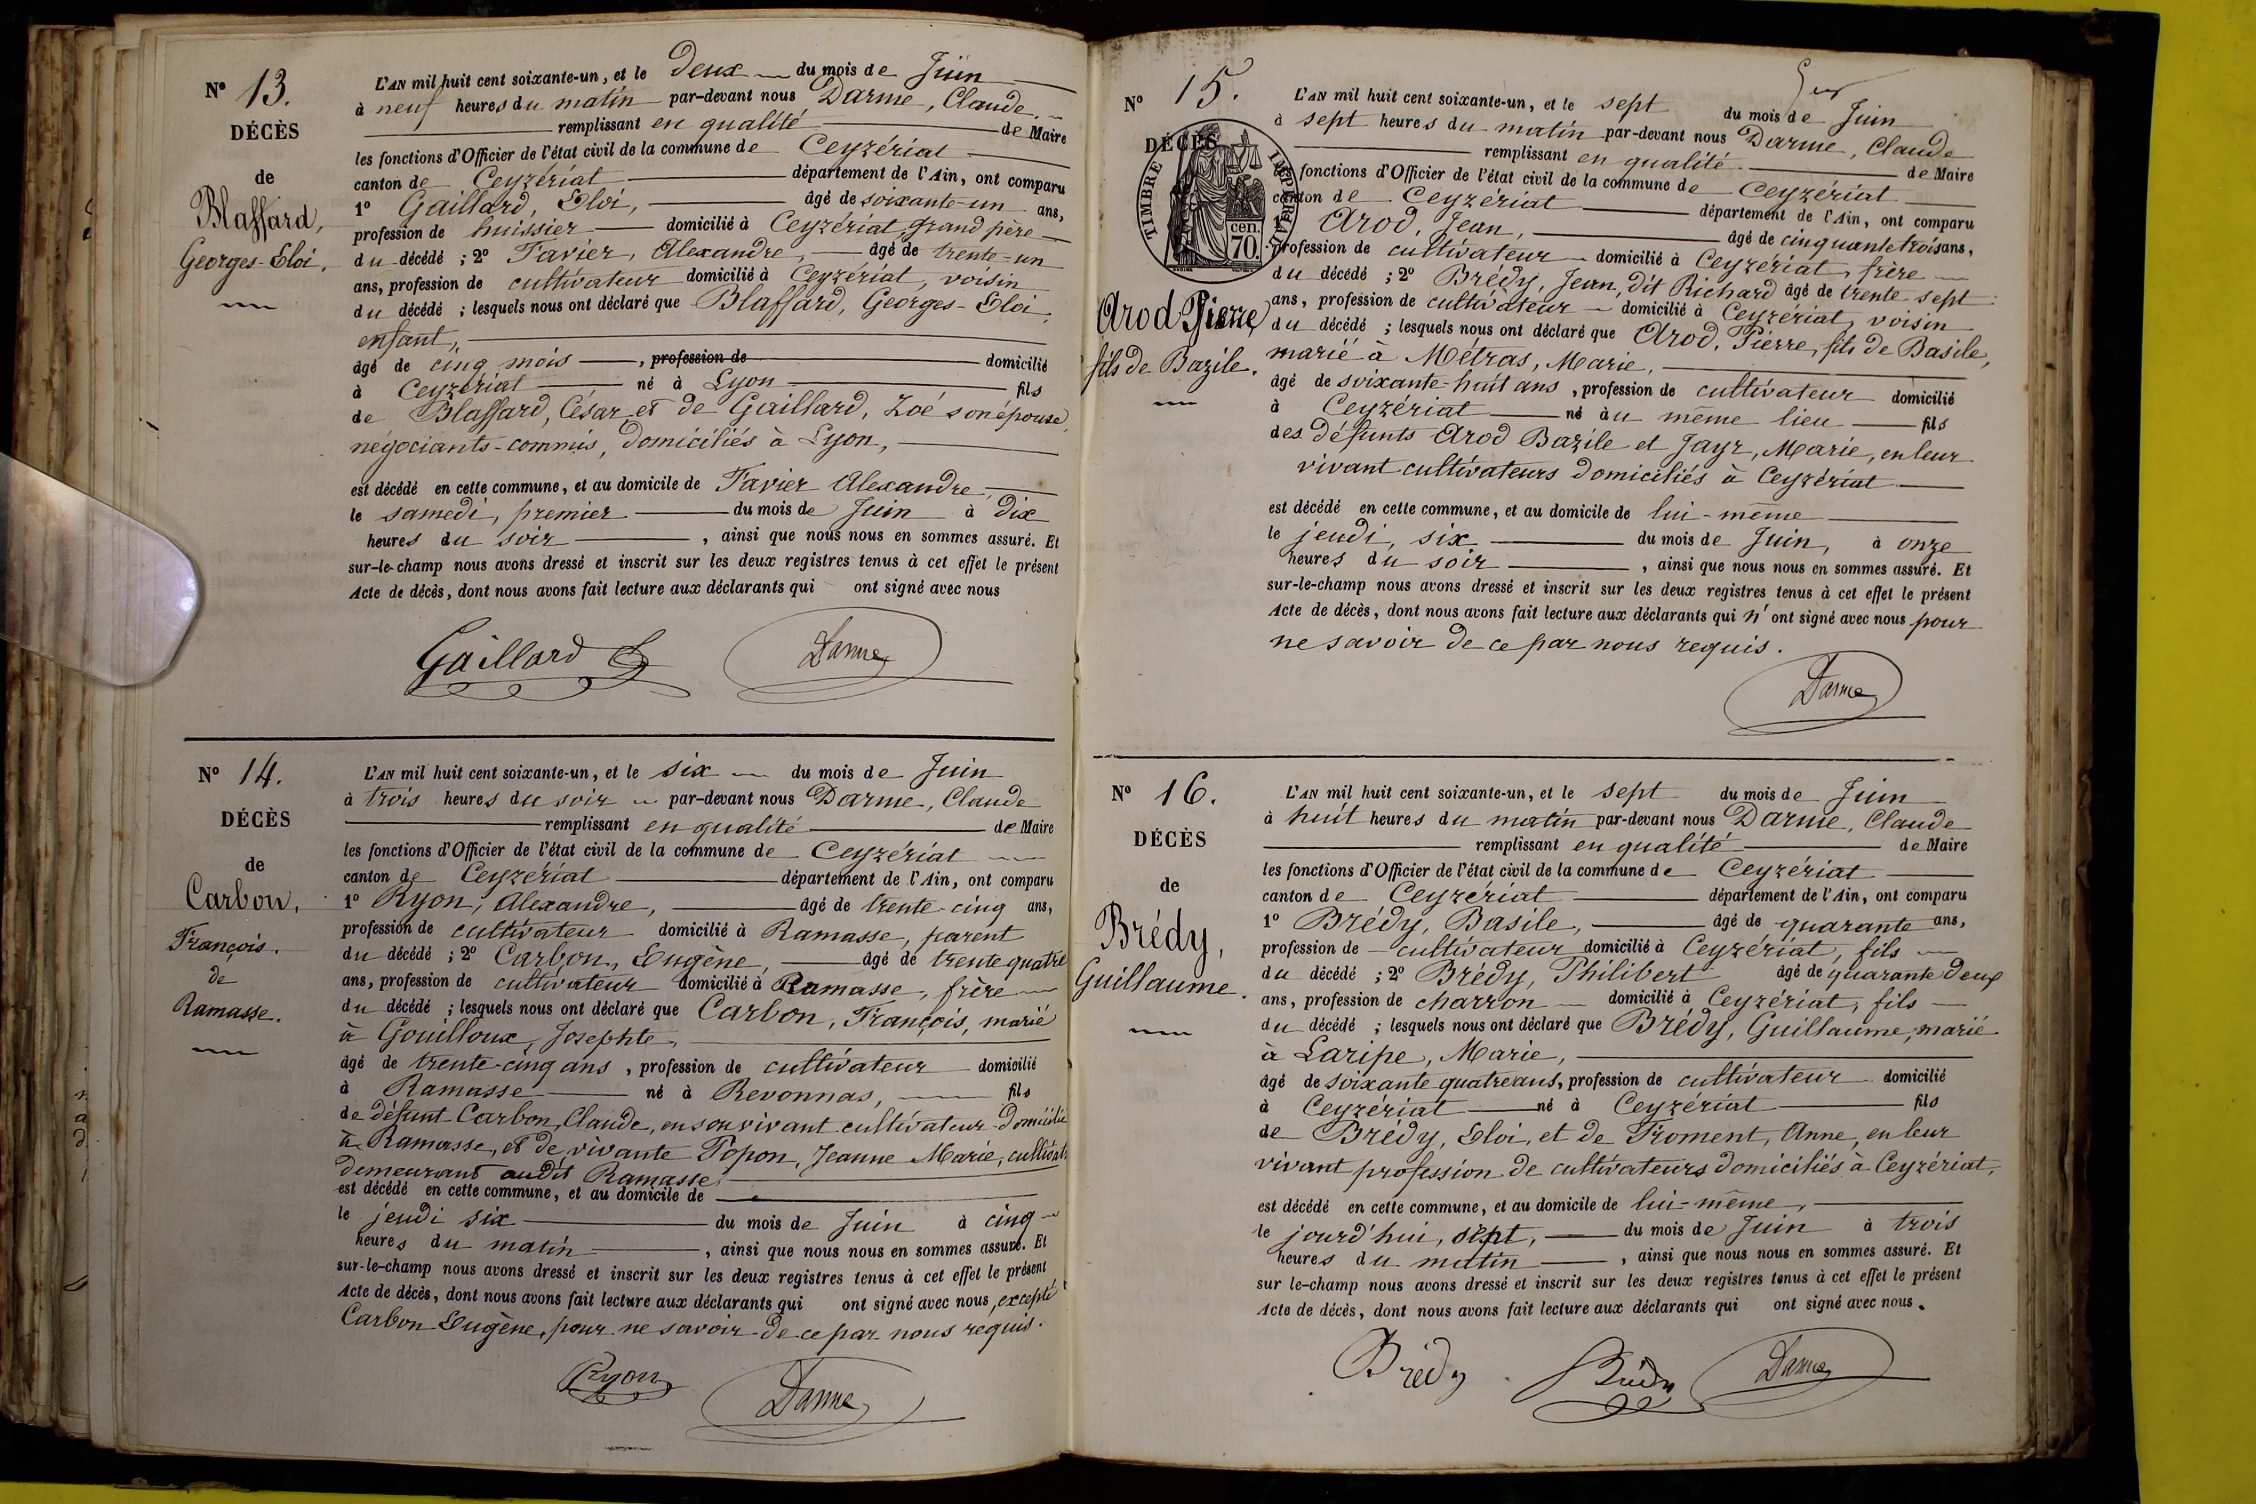 N° 13.
DÉCÈS
de
Blaffard,
Georges-Eloi.
L'AN mil huit cent soixante-un, et le deux du mois de Juin
à neuf heures du matin par-devant nous Darme, Claude
remplissant en qualité de Maire
les fonctions d'Officier de l'état civil de la commune de Ceyzériat
canton de Ceyzériat département de l'Ain, ont comparu
1° Gaillard, Eloi, âgé de soixante-un ans,
profession de huissier domicilié à Ceyzériat, grand père
du décédé ; 2° Favier, Alexandre, âgé de trente-un
ans, profession de cultivateur domicilié à Ceyzériat, voisin
du décédé ; lesquels nous ont déclaré que Blaffard, Georges-Eloi,
enfant,
âgé de cinq mois , profession de domicilié
à Ceyzériat né à Lyon fils
de Blaffard, César et de Gaillard, Zoé son épouse,
négociants-commis, domiciliés à Lyon,
est décédé en cette commune, et au domicile de Favier Alexandre,
le samedi, premier du mois de Juin à dix
heures du soir , ainsi que nous nous en sommes assuré. Et
sur-le-champ nous avons dressé et inscrit sur les deux registres tenus à cet effet le présent
Acte de décès, dont nous avons fait lecture aux déclarants qui ont signé avec nous
Gaillard Darme
N° 14.
DÉCÈS
de
Carbon,
François.
de
Ramasse.
L'AN mil huit cent soixante-un, et le six du mois de Juin
à trois heures du soir par-devant nous Darme, Claude
remplissant en qualité de Maire
les fonctions d'Officier de l'état civil de la commune de Ceyzériat
canton de Ceyzériat département de l'Ain, ont comparu
1° Ryon, Alexandre, âgé de trente-cinq ans,
profession de cultivateur domicilié à Ramasse, parent
du décédé ; 2° Carbon, Eugène, âgé de trente quatre
ans, profession de cultivateur domicilié à Ramasse, frère
du décédé ; lesquels nous ont déclaré que Carbon, François, marié
à Gouilloux, Josephte,
âgé de trente-cinq ans , profession de cultivateur domicilié
à Ramasse né à Revonnas, fils
de défunt Carbon, Claude, en son vivant cultivateur domicilié
à Ramasse, et de vivante Popon, Jeanne Marie,
demeurant audit Ramasse,
est décédé en cette commune, et au domicile de
le jeudi six du mois de Juin à cinq
heures du matin , ainsi que nous nous en sommes assuré. Et
sur-le-champ nous avons dressé et inscrit sur les deux registres tenus à cet effet le présent
Acte de décès, dont nous avons fait lecture aux déclarants qui ont signé avec nous, excepté
Carbon Eugène, pour ne savoir de ce par nous requis.
Ryon Darme
N° 15.
DÉCÈS
TIMBRE IMPÉRIAL
cen.
70.
Arod Pierre
fils de Bazile.
L'AN mil huit cent soixante-un, et le sept du mois de Juin
à sept heures du matin par-devant nous Darme, Claude
remplissant en qualité de Maire
fonctions d'Officier de l'état civil de la commune de Ceyzériat
canton de Ceyzériat département de l'Ain, ont comparu
Arod, Jean, âgé de cinquante trois ans,
profession de cultivateur domicilié à Ceyzériat, frère
du décédé ; 2° Brédy, Jean, dit Richard âgé de trente sept
ans, profession de cultivateur domicilié à Ceyzériat, voisin
du décédé ; lesquels nous ont déclaré que Arod, Pierre, fils de Basile,
marié à Métras, Marie,
âgé de soixante-huit ans , profession de cultivateur domicilié
à Ceyzériat né au même lieu fils
des défunts Arod Bazile et Jayr, Marie, en leur
vivant cultivateurs domiciliés à Ceyzériat
est décédé en cette commune, et au domicile de lui-même
le jeudi, six du mois de Juin, à onze
heures du soir , ainsi que nous nous en sommes assuré. Et
sur-le-champ nous avons dressé et inscrit sur les deux registres tenus à cet effet le présent
Acte de décès, dont nous avons fait lecture aux déclarants qui n'ont signé avec nous pour
ne savoir de ce par nous requis.
Darme
N° 16.
DÉCÈS
de
Brédy,
Guillaume.
L'AN mil huit cent soixante-un, et le sept du mois de Juin
à huit heures du matin par-devant nous Darme, Claude
remplissant en qualité de Maire
les fonctions d'Officier de l'état civil de la commune de Ceyzériat
canton de Ceyzériat département de l'Ain, ont comparu
1° Brédy, Basile, âgé de quarante ans,
profession de cultivateur domicilié à Ceyzériat, fils
du décédé ; 2° Brédy, Philibert âgé de quarante deux
ans, profession de charron domicilié à Ceyzériat, fils
du décédé ; lesquels nous ont déclaré que Brédy, Guillaume, marié
à Laripe, Marie,
âgé de soixante quatre ans, profession de cultivateur domicilié
à Ceyzériat né à Ceyzériat fils
de Brédy, Eloi, et de Froment, Anne, en leur
vivant profession de cultivateurs domiciliés à Ceyzériat,
est décédé en cette commune, et au domicile de lui-même,
le jourd'hui, sept, du mois de Juin à trois
heures du matin , ainsi que nous nous en sommes assuré. Et
sur le-champ nous avons dressé et inscrit sur les deux registres tenus à cet effet le présent
Acte de décès, dont nous avons fait lecture aux déclarants qui ont signé avec nous.
Brédy Brédy Darme